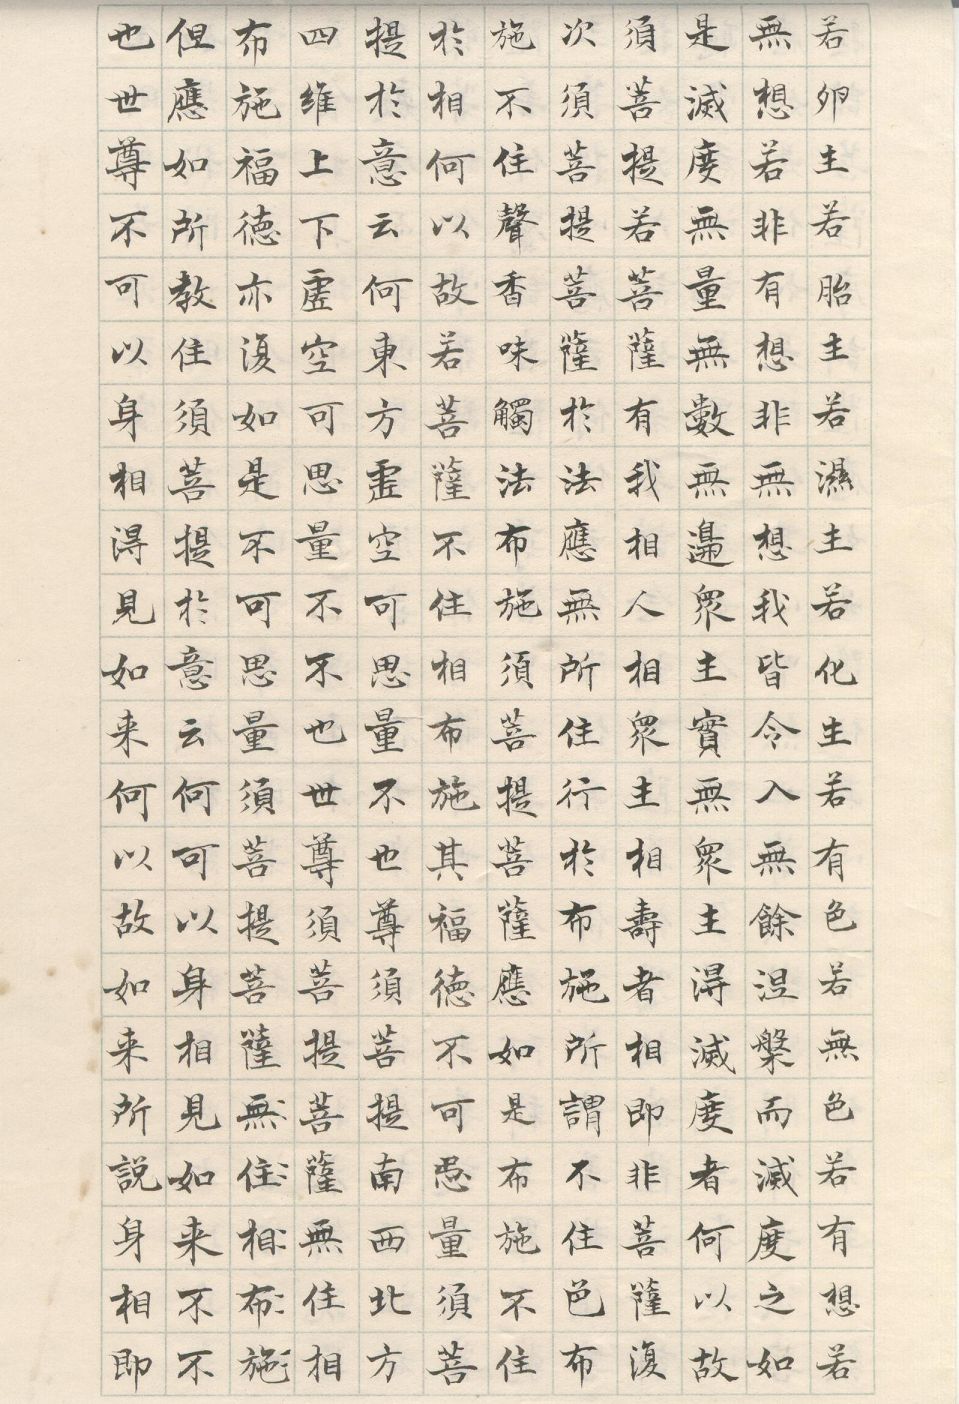 若卵生若胎生若濕生若化生若有色若無色若有想若
無想若非有想非無想我皆令入無餘涅槃而滅度之如
是滅度無量無數無邊眾生實無眾生得滅度者何以故
須菩提若菩薩有我相人相眾生相壽者相即非菩薩復
次須菩提菩薩於法應無所住行於布施所謂不住色布
施不住聲香味觸法布施須菩提菩薩應如是布施不住
於相何以故若菩薩不住相布施其福德不可思量須菩
提於意云何東方虛空可思量不也尊須菩提南西北方
四維上下虛空可思量不不也世尊須菩提菩薩無住相
布施福德亦復如是不可思量須菩提菩薩無住相布施
但應如所教住須菩提於意云何可以身相見如来不不
也世尊不可以身相得見如来何以故如来所説身相即